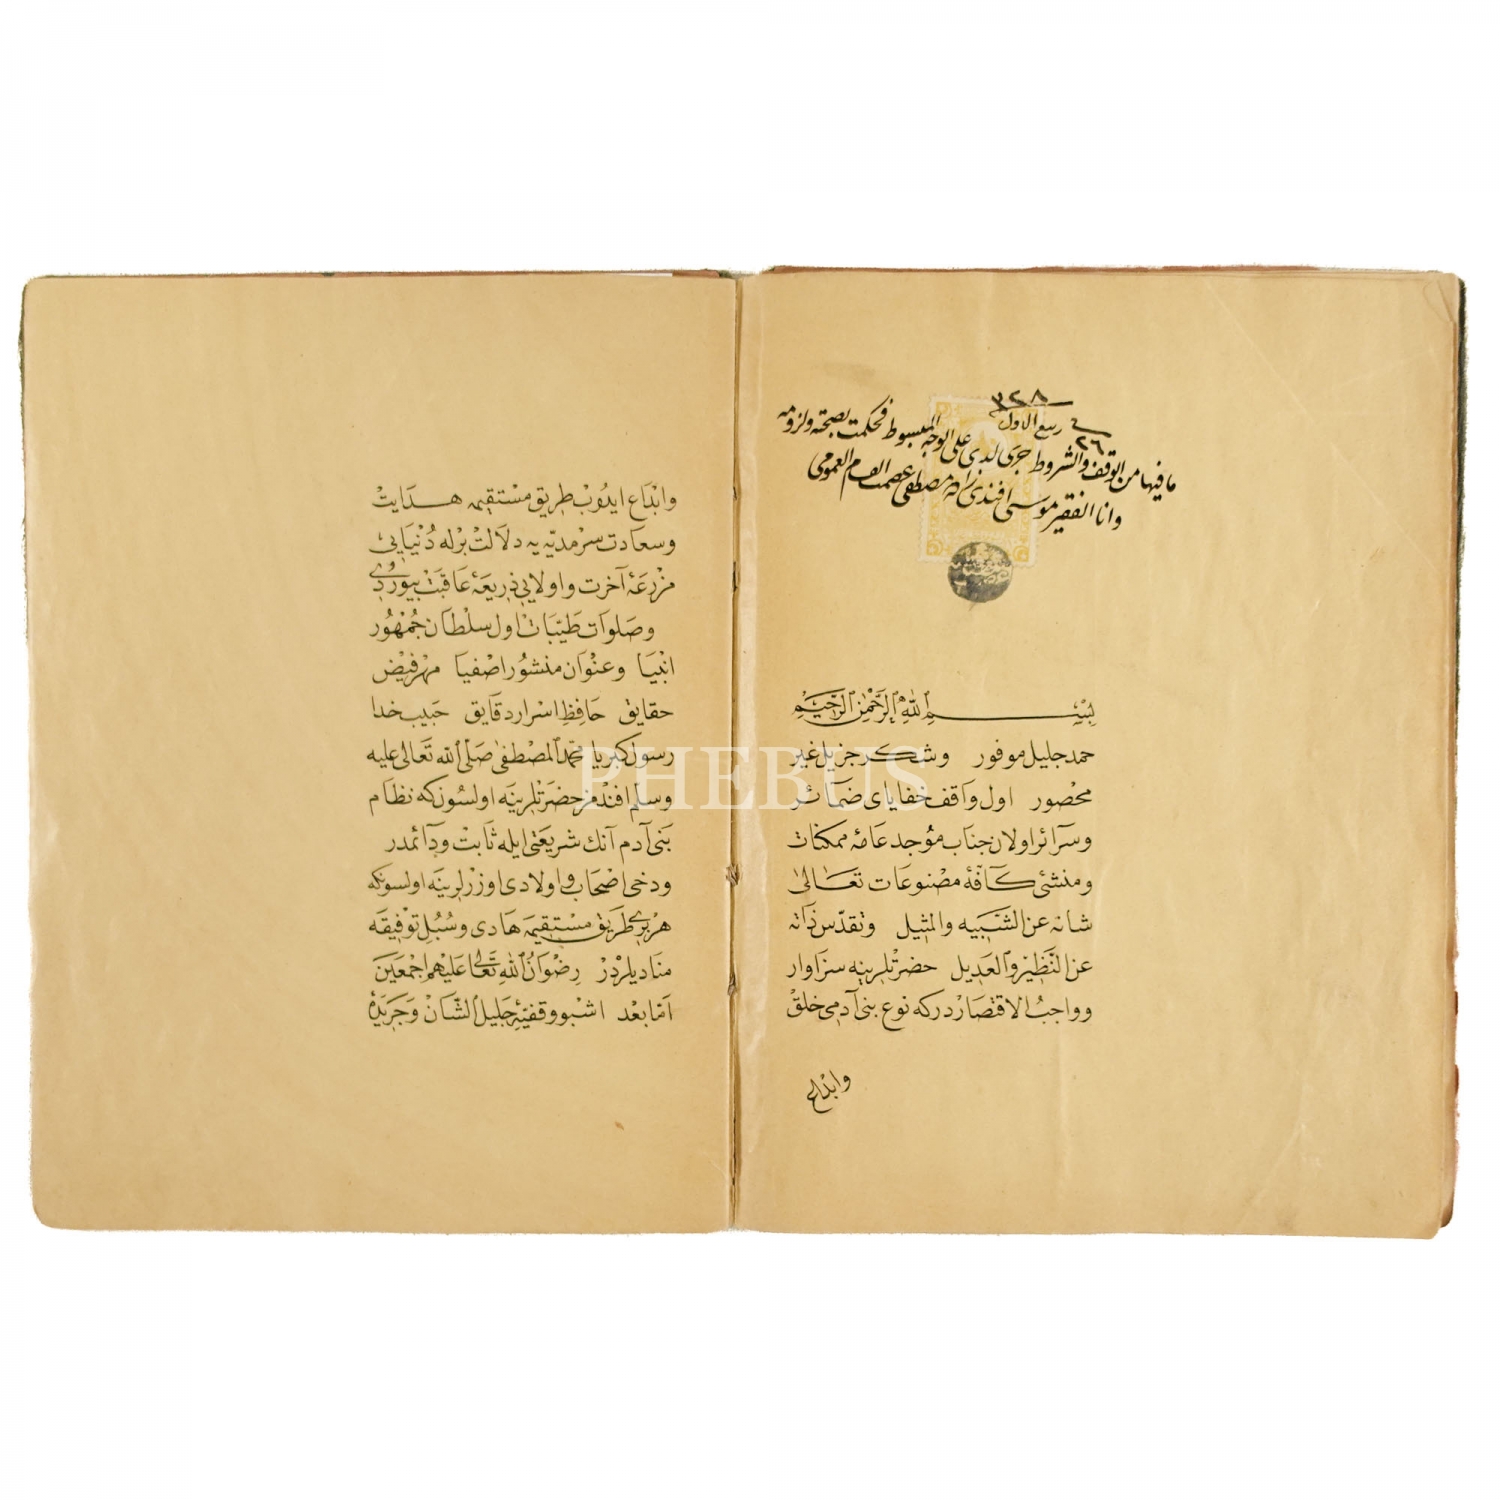 ٣٢٨
ربيع الاول
٢٦
ما فيها من الوقف والشروط جرى لدى على الوجه المبسوط فحكمت بصحته ولزومه
وانا الفقير موسى افندى زاده مصطفى عصمت العمومى
بِسْمِ اللّٰهِ الرَّحْمٰنِ الرَّحِيمِ
حمد جليل موفور وشكر جزيل غير
محصور اول واقف خفاياى ضمائر
وسرائر اولان جناب موجد عامهٔ ممكنات
ومنشئ كافهٔ مصنوعات تعالى
شانه عن الشبيه والمثيل وتقدّس ذاته
عن النظير والعديل حضرتلرينه سزاوار
وواجب الاقتصار دركه نوع بنى آدمى خلق
وابداع
وابداع ايدوب طريق مستقيمه هدايت
وسعادت سرمديه يه دلالت برله دنيايى
مزرعهٔ آخرت واولايى ذريعهٔ عاقبت بيوردى
وصلوات طيّبات اول سلطان جمهور
انبيا وعنوان منشور اصفيا مهر فيض
حقايق حافظ اسرار دقايق حبيب خدا
رسول كبريا محمد المصطفى صلى الله تعالى عليه
وسلم افندمز حضرتلرينه اولسون كه نظام
بنى آدم آنك شريعتى ايله ثابت ودائمدر
ودخى اصحاب واولادى اوزرلرينه اولسونكه
هر برى طريق مستقيمه هادى وسبل توفيقه
مناديلردر رضوان الله تعالى عليهم اجمعين
امّا بعد اشبو وقفيهٔ جليل الشان وجريدهٔ
PHEBUS